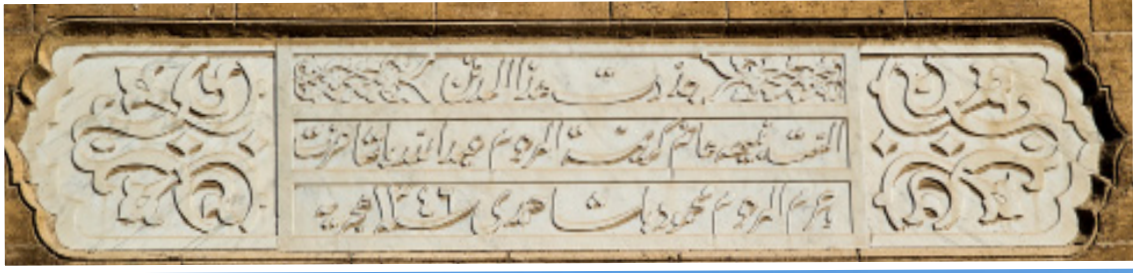 جددت هذا المدفن
الست نفيسه هانم كريمة المرحوم عبد الله باشا عزت
حرم المرحوم محمود باشا حمدي سنة ١٢٤٦ هجريه